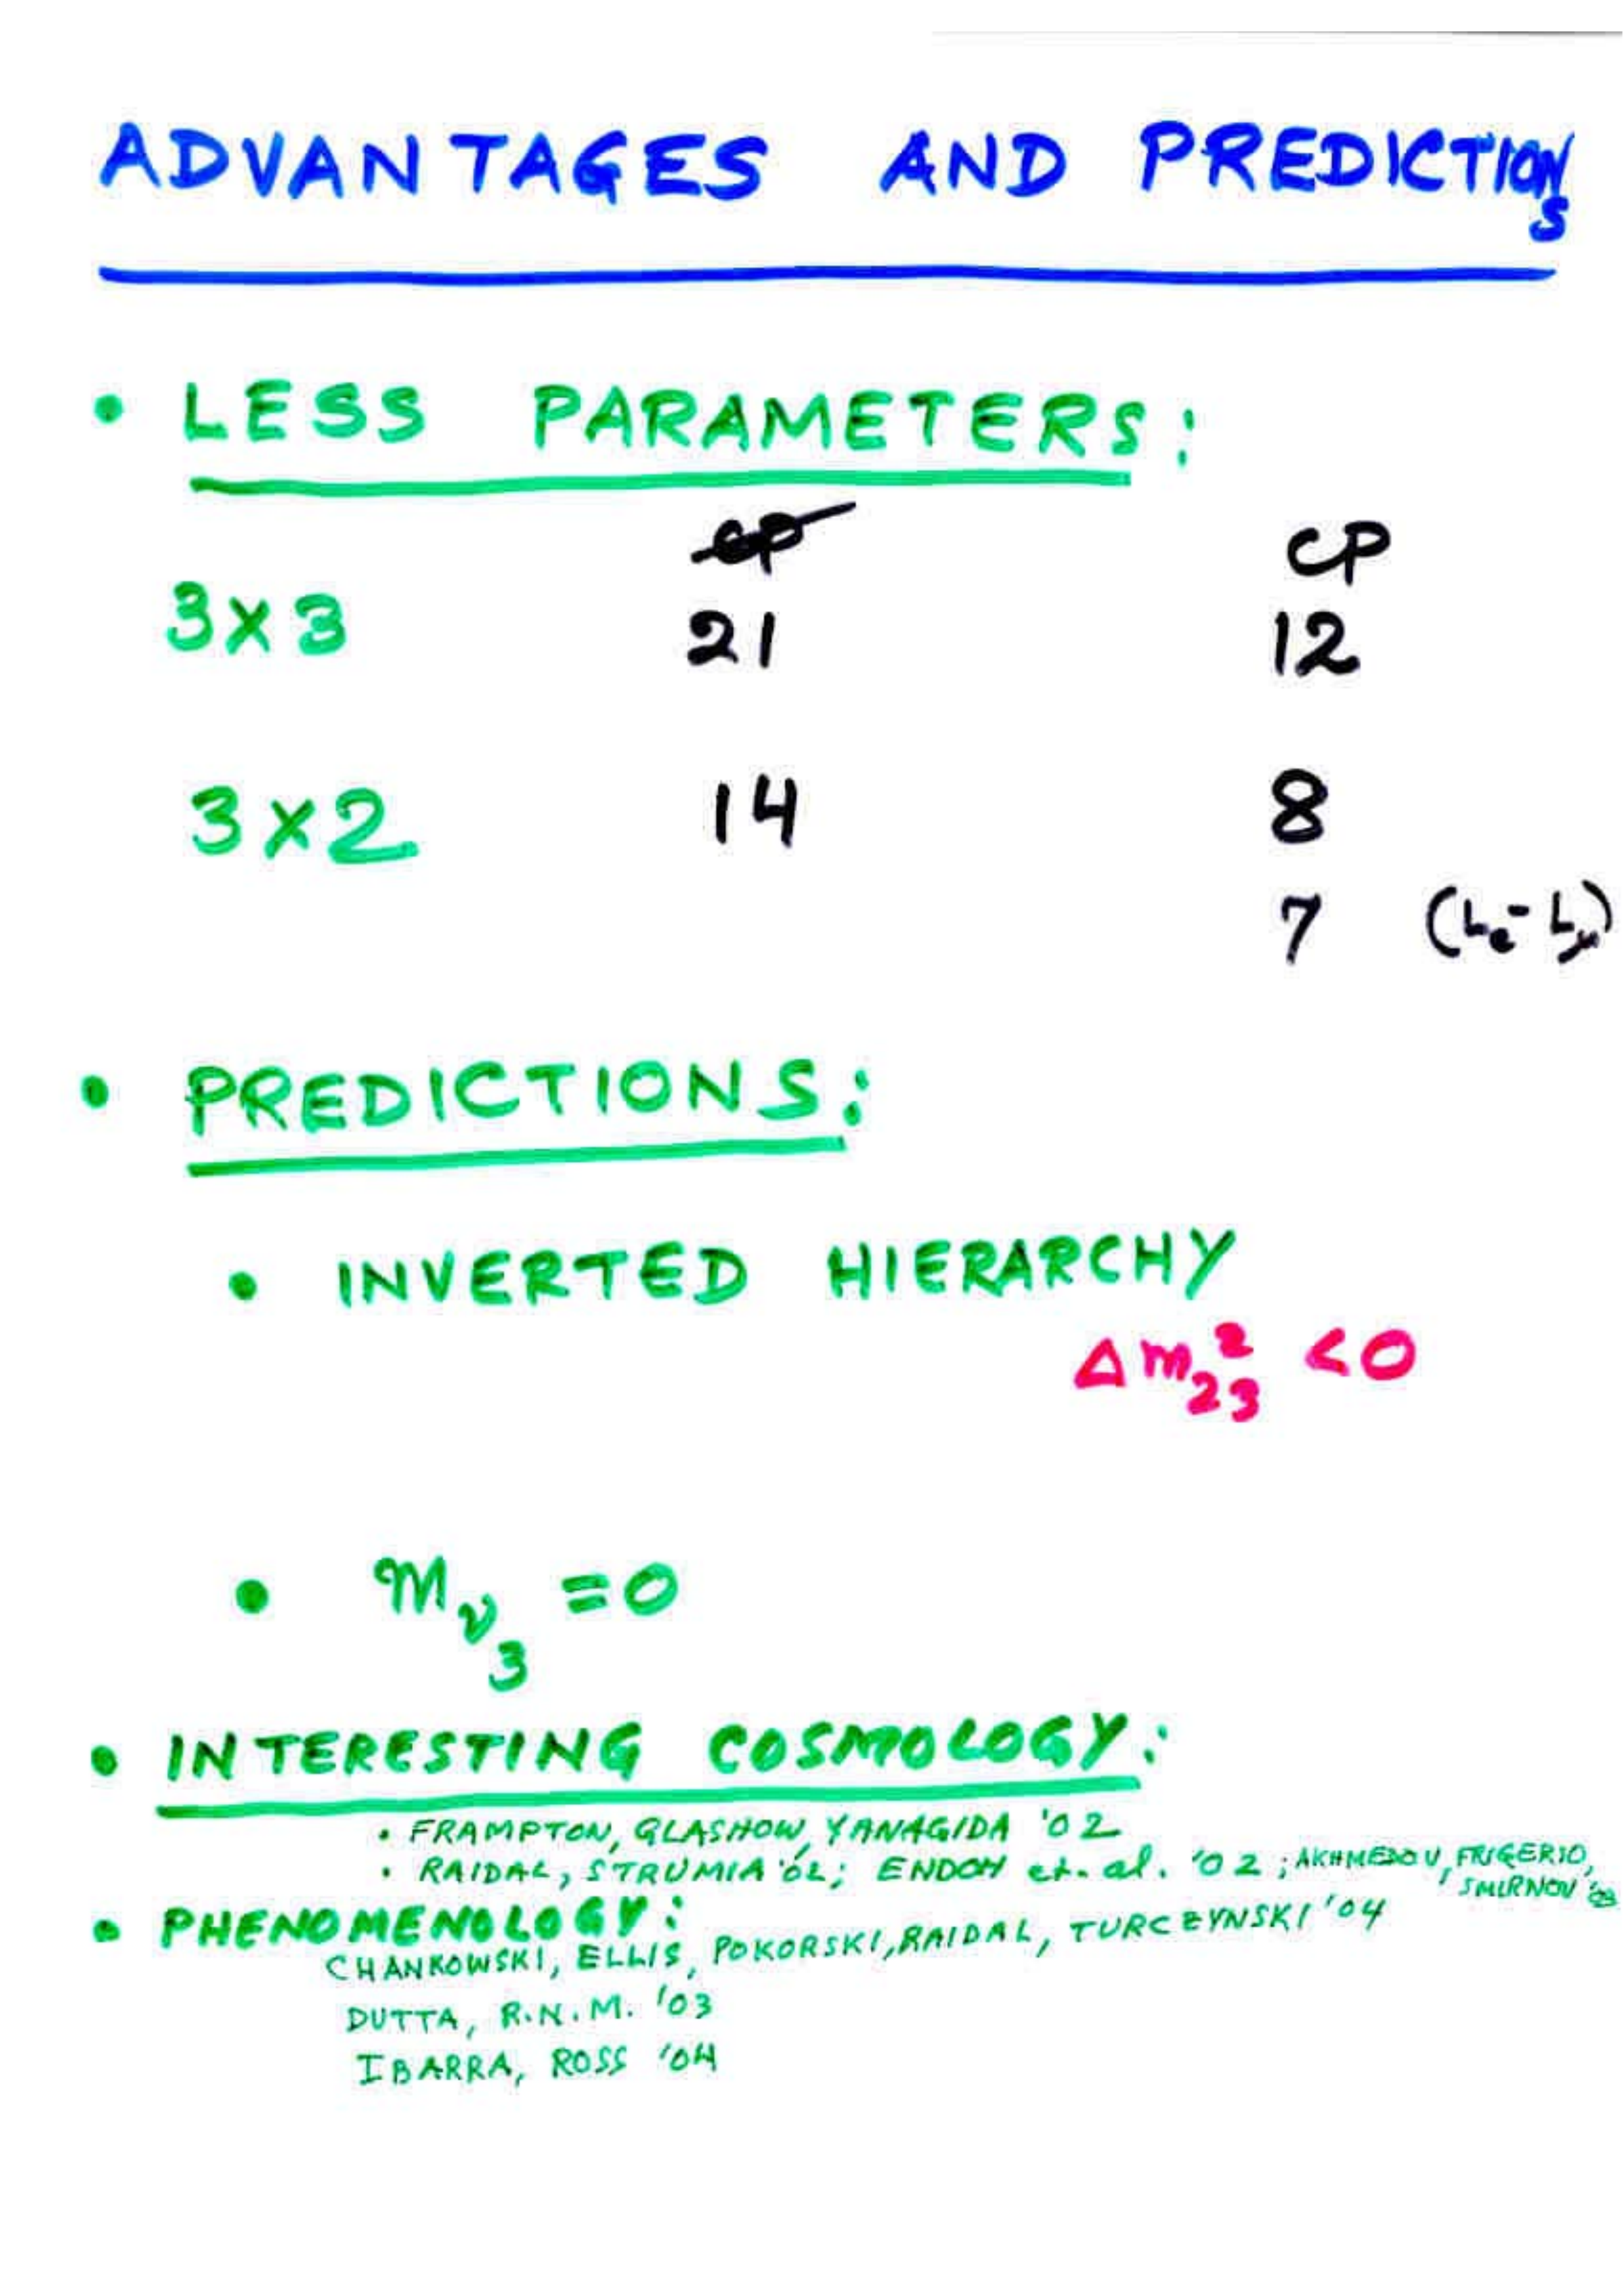 ADVANTAGES AND PREDICTIONS
• LESS PARAMETERS:
C̶P̶ CP
3×3 21 12
3×2 14 8
7 (Le - Lμ)
• PREDICTIONS:
• INVERTED HIERARCHY
Δm²₂₃ <0
• m_ν₃ =0
• INTERESTING COSMOLOGY:
• FRAMPTON, GLASHOW, YANAGIDA '02
• RAIDAL, STRUMIA '02; ENDOH et. al. '02; AKHMEDOV, FRIGERIO,
SMIRNOV '03
• PHENOMENOLOGY:
CHANKOWSKI, ELLIS, POKORSKI, RAIDAL, TURCZYNSKI '04
DUTTA, R.N.M. '03
IBARRA, ROSS '04